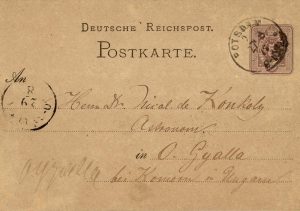 DEUTSCHE REICHSPOST.
POSTKARTE.
POTSDAM
An
Herrn Dr. Nicol. de Konkoly
Astronom
in O. Gyalla
bei Komorn in Ungarn